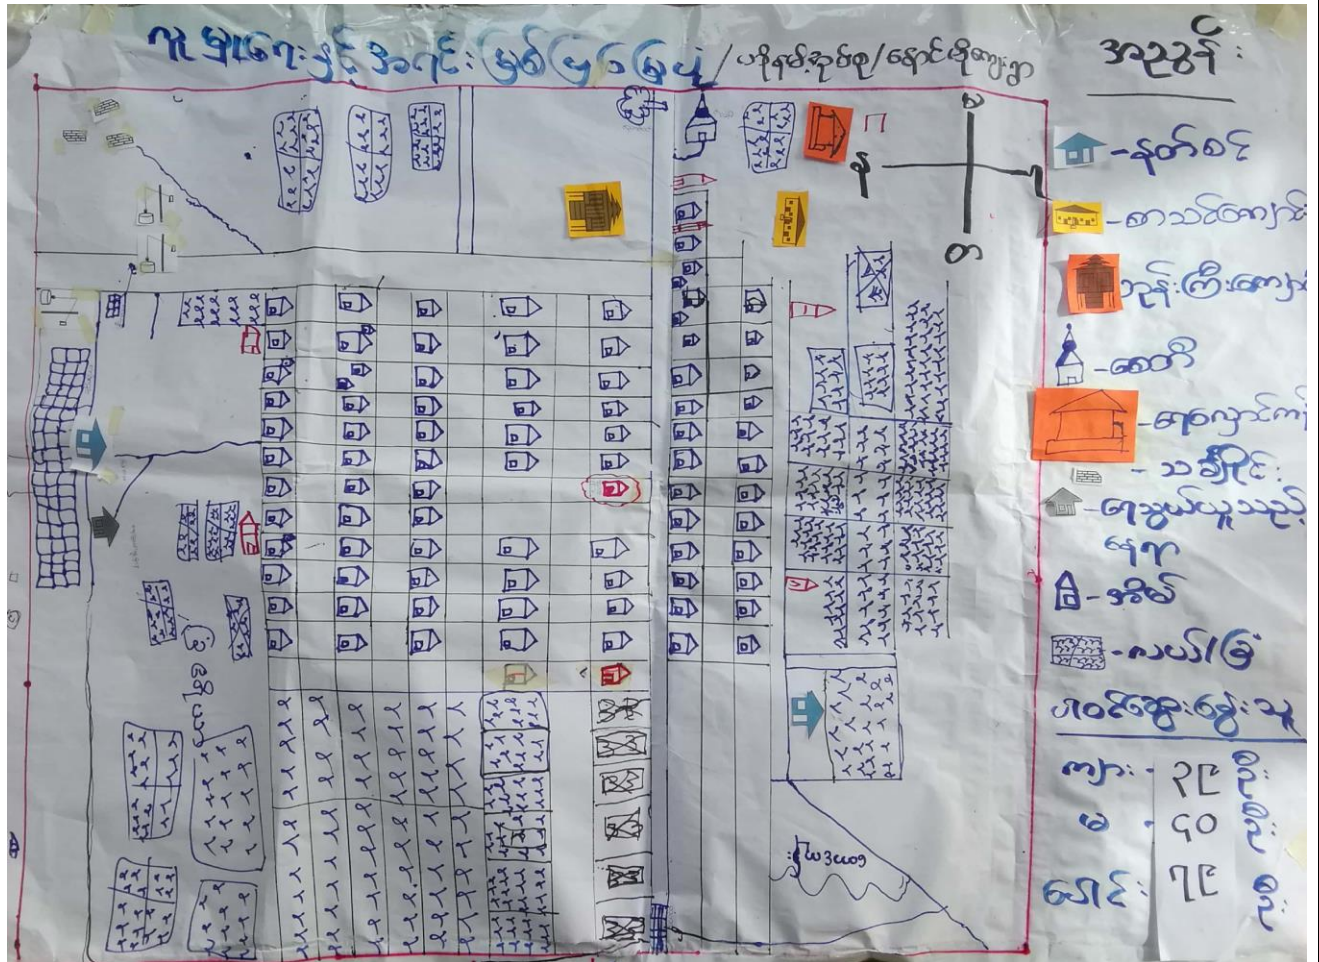 လူမှုရေးနှင့်အရင်းမြစ်ပြမြေပုံ / ဟိုနမ့်အုပ်စု/နောင်ဗိုကျေးရွာ
အညွှန်း
န
တ
- နတ်စင်
- စာသင်ကျောင်း
ဘုန်းကြီးကျောင်း
- စေတီ
- ရေလှောင်ကန်
- သင်္ချိုင်း
- ရေသွယ်ယူသည့်
နေရာ
- အိမ်
- လယ်/ခြံ
ပါဝင်ဆွေးနွေးသူ
ကျား - ၃၉ ဦး
မ - ၄၀ ဦး
ပေါင်း - ၇၉ ဦး